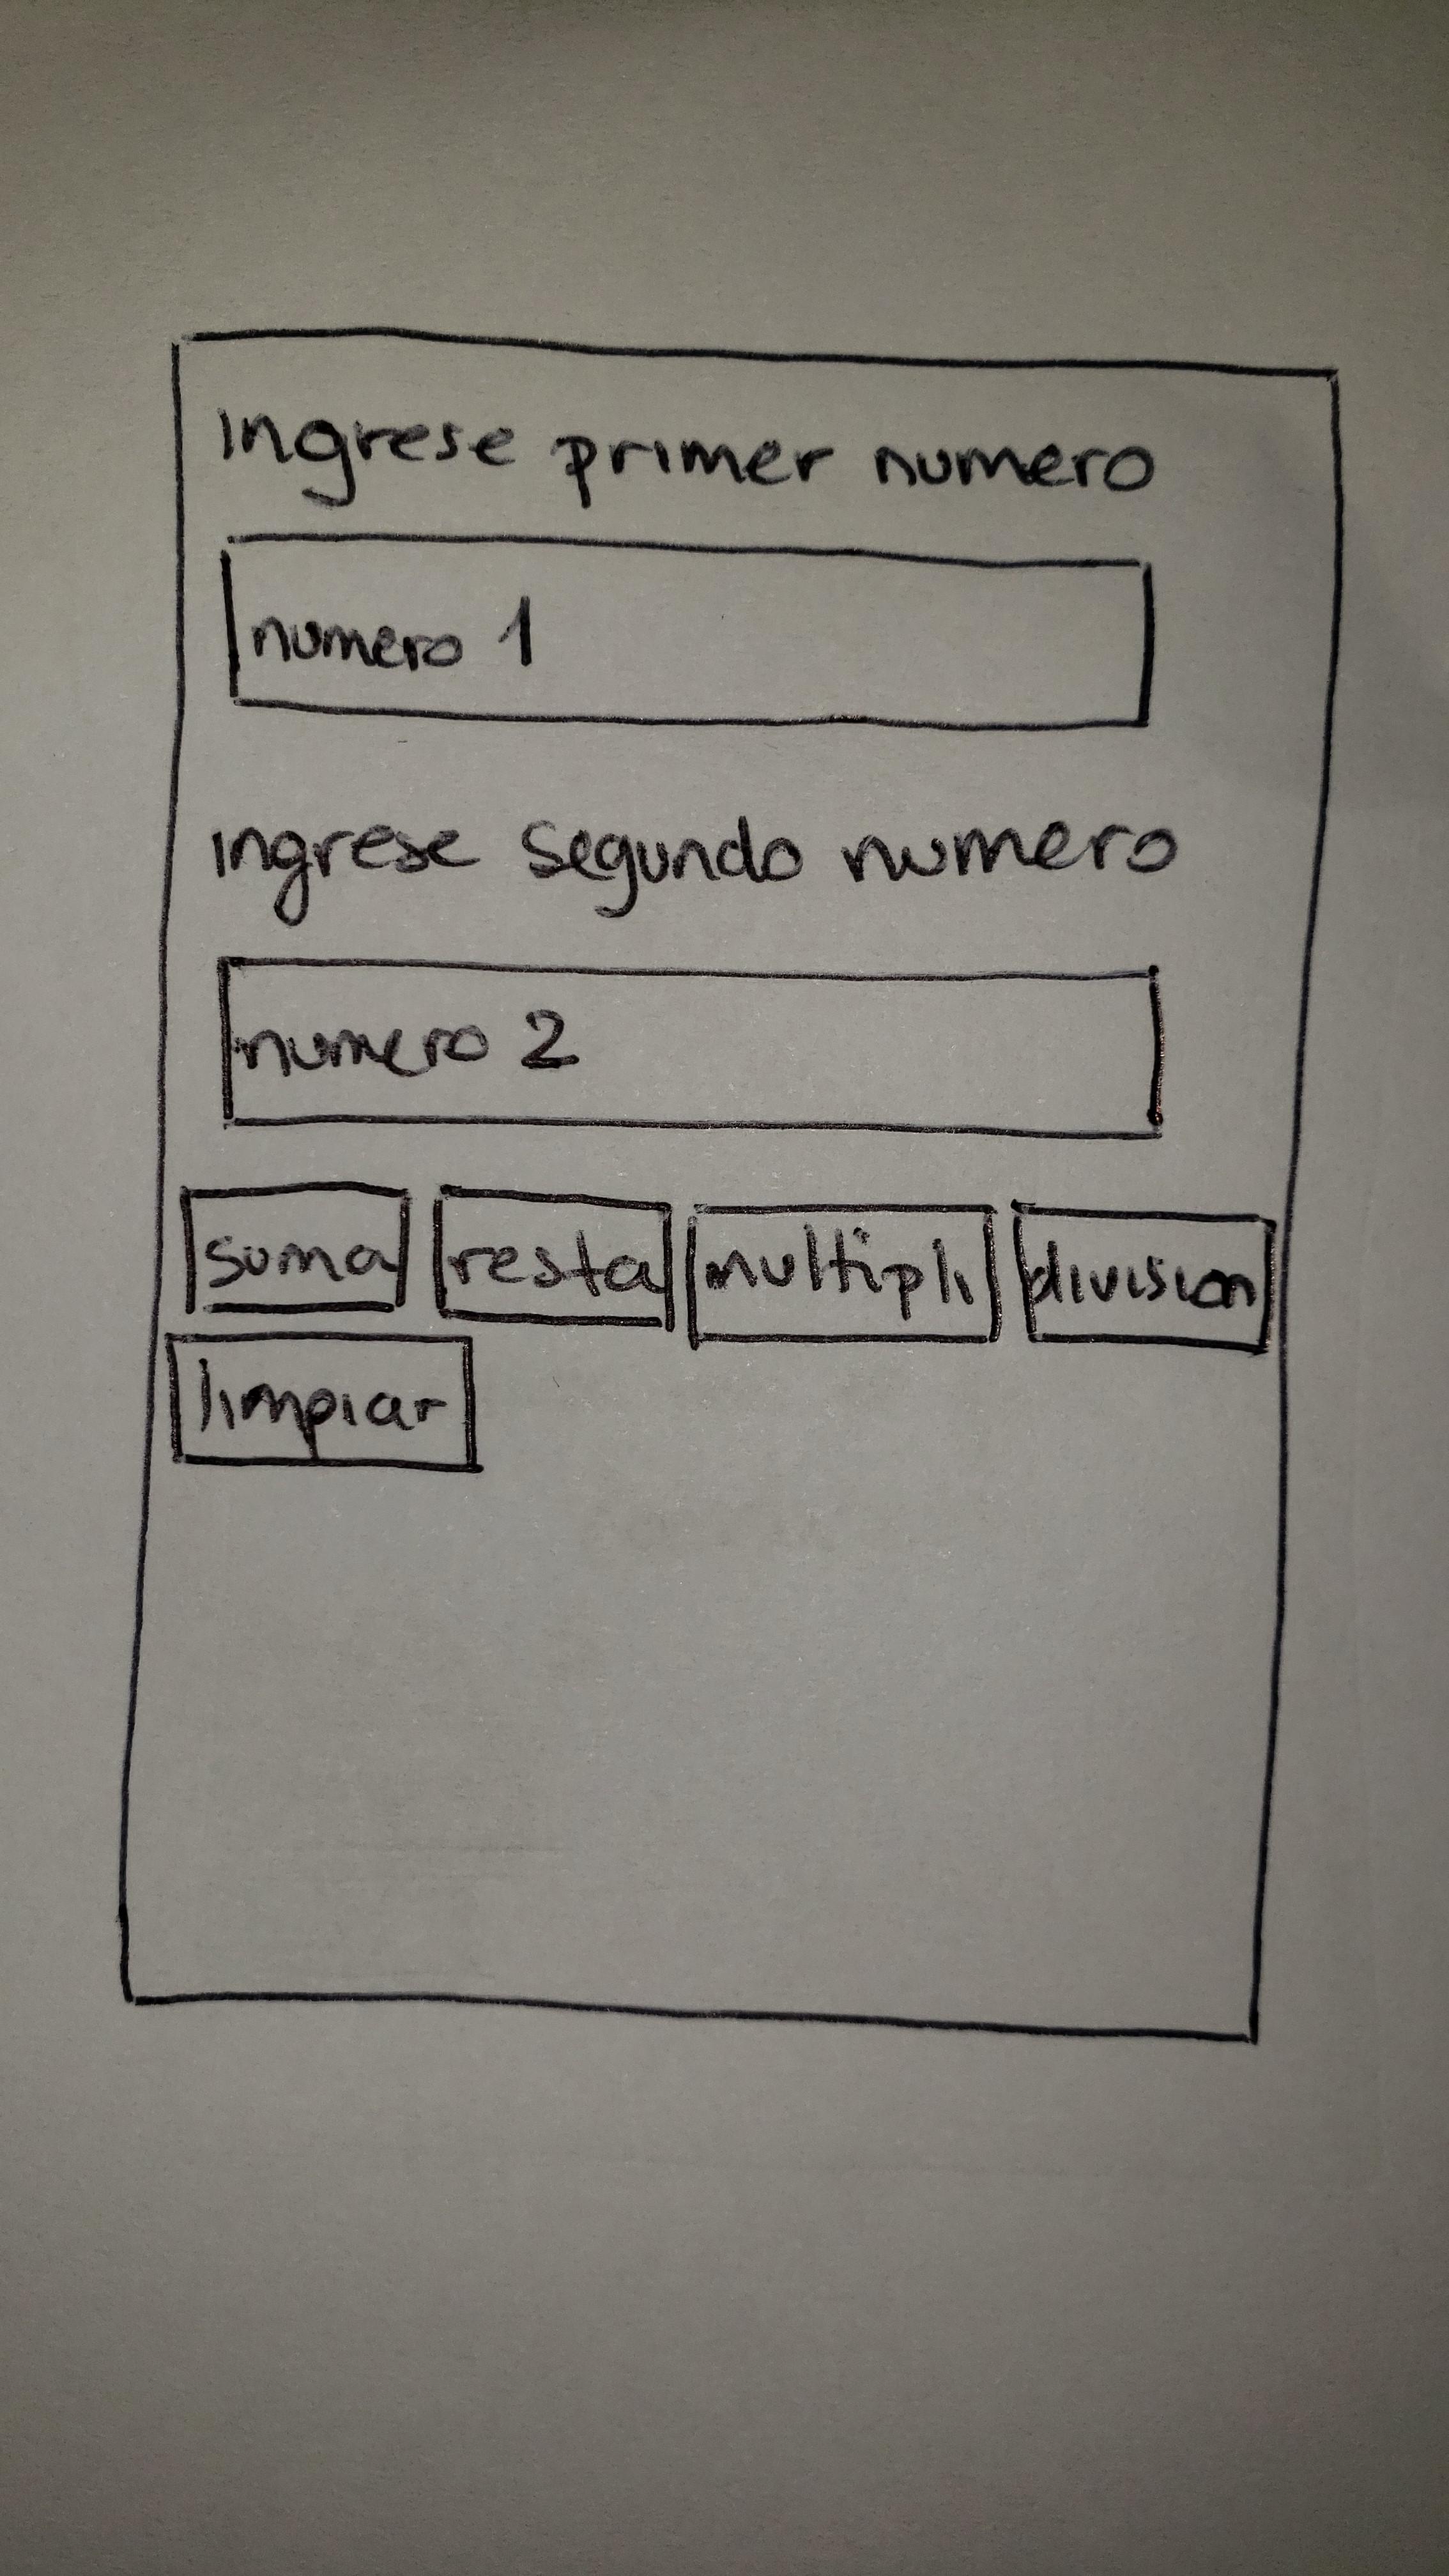 Ingrese primer numero
numero 1
ingrese segundo numero
numero 2
suma resta multipli division
limpiar